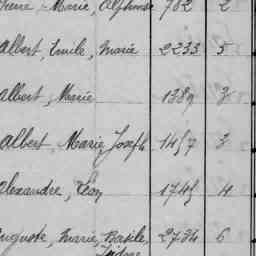 Pierre, Marie, Alphonse 782 2
Albert, Emile, Marie 2233 5
Albert, Marie 1389 3
Albert, Marie Joseph 1457 3
Alexandre, Léon 1745 4
Auguste, Marie, Basile, 2734 6
Isidore